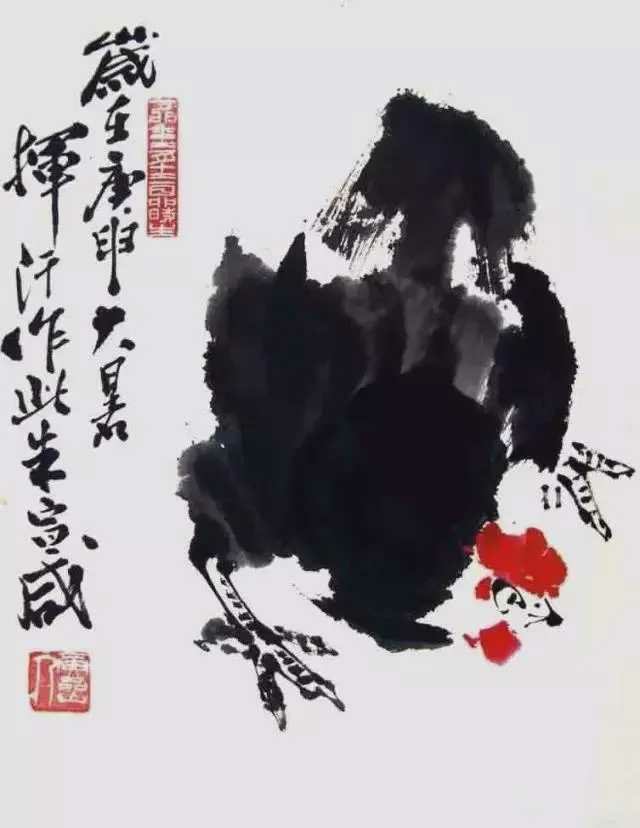 歲在庚申大暑
揮汗作此朱宣咸